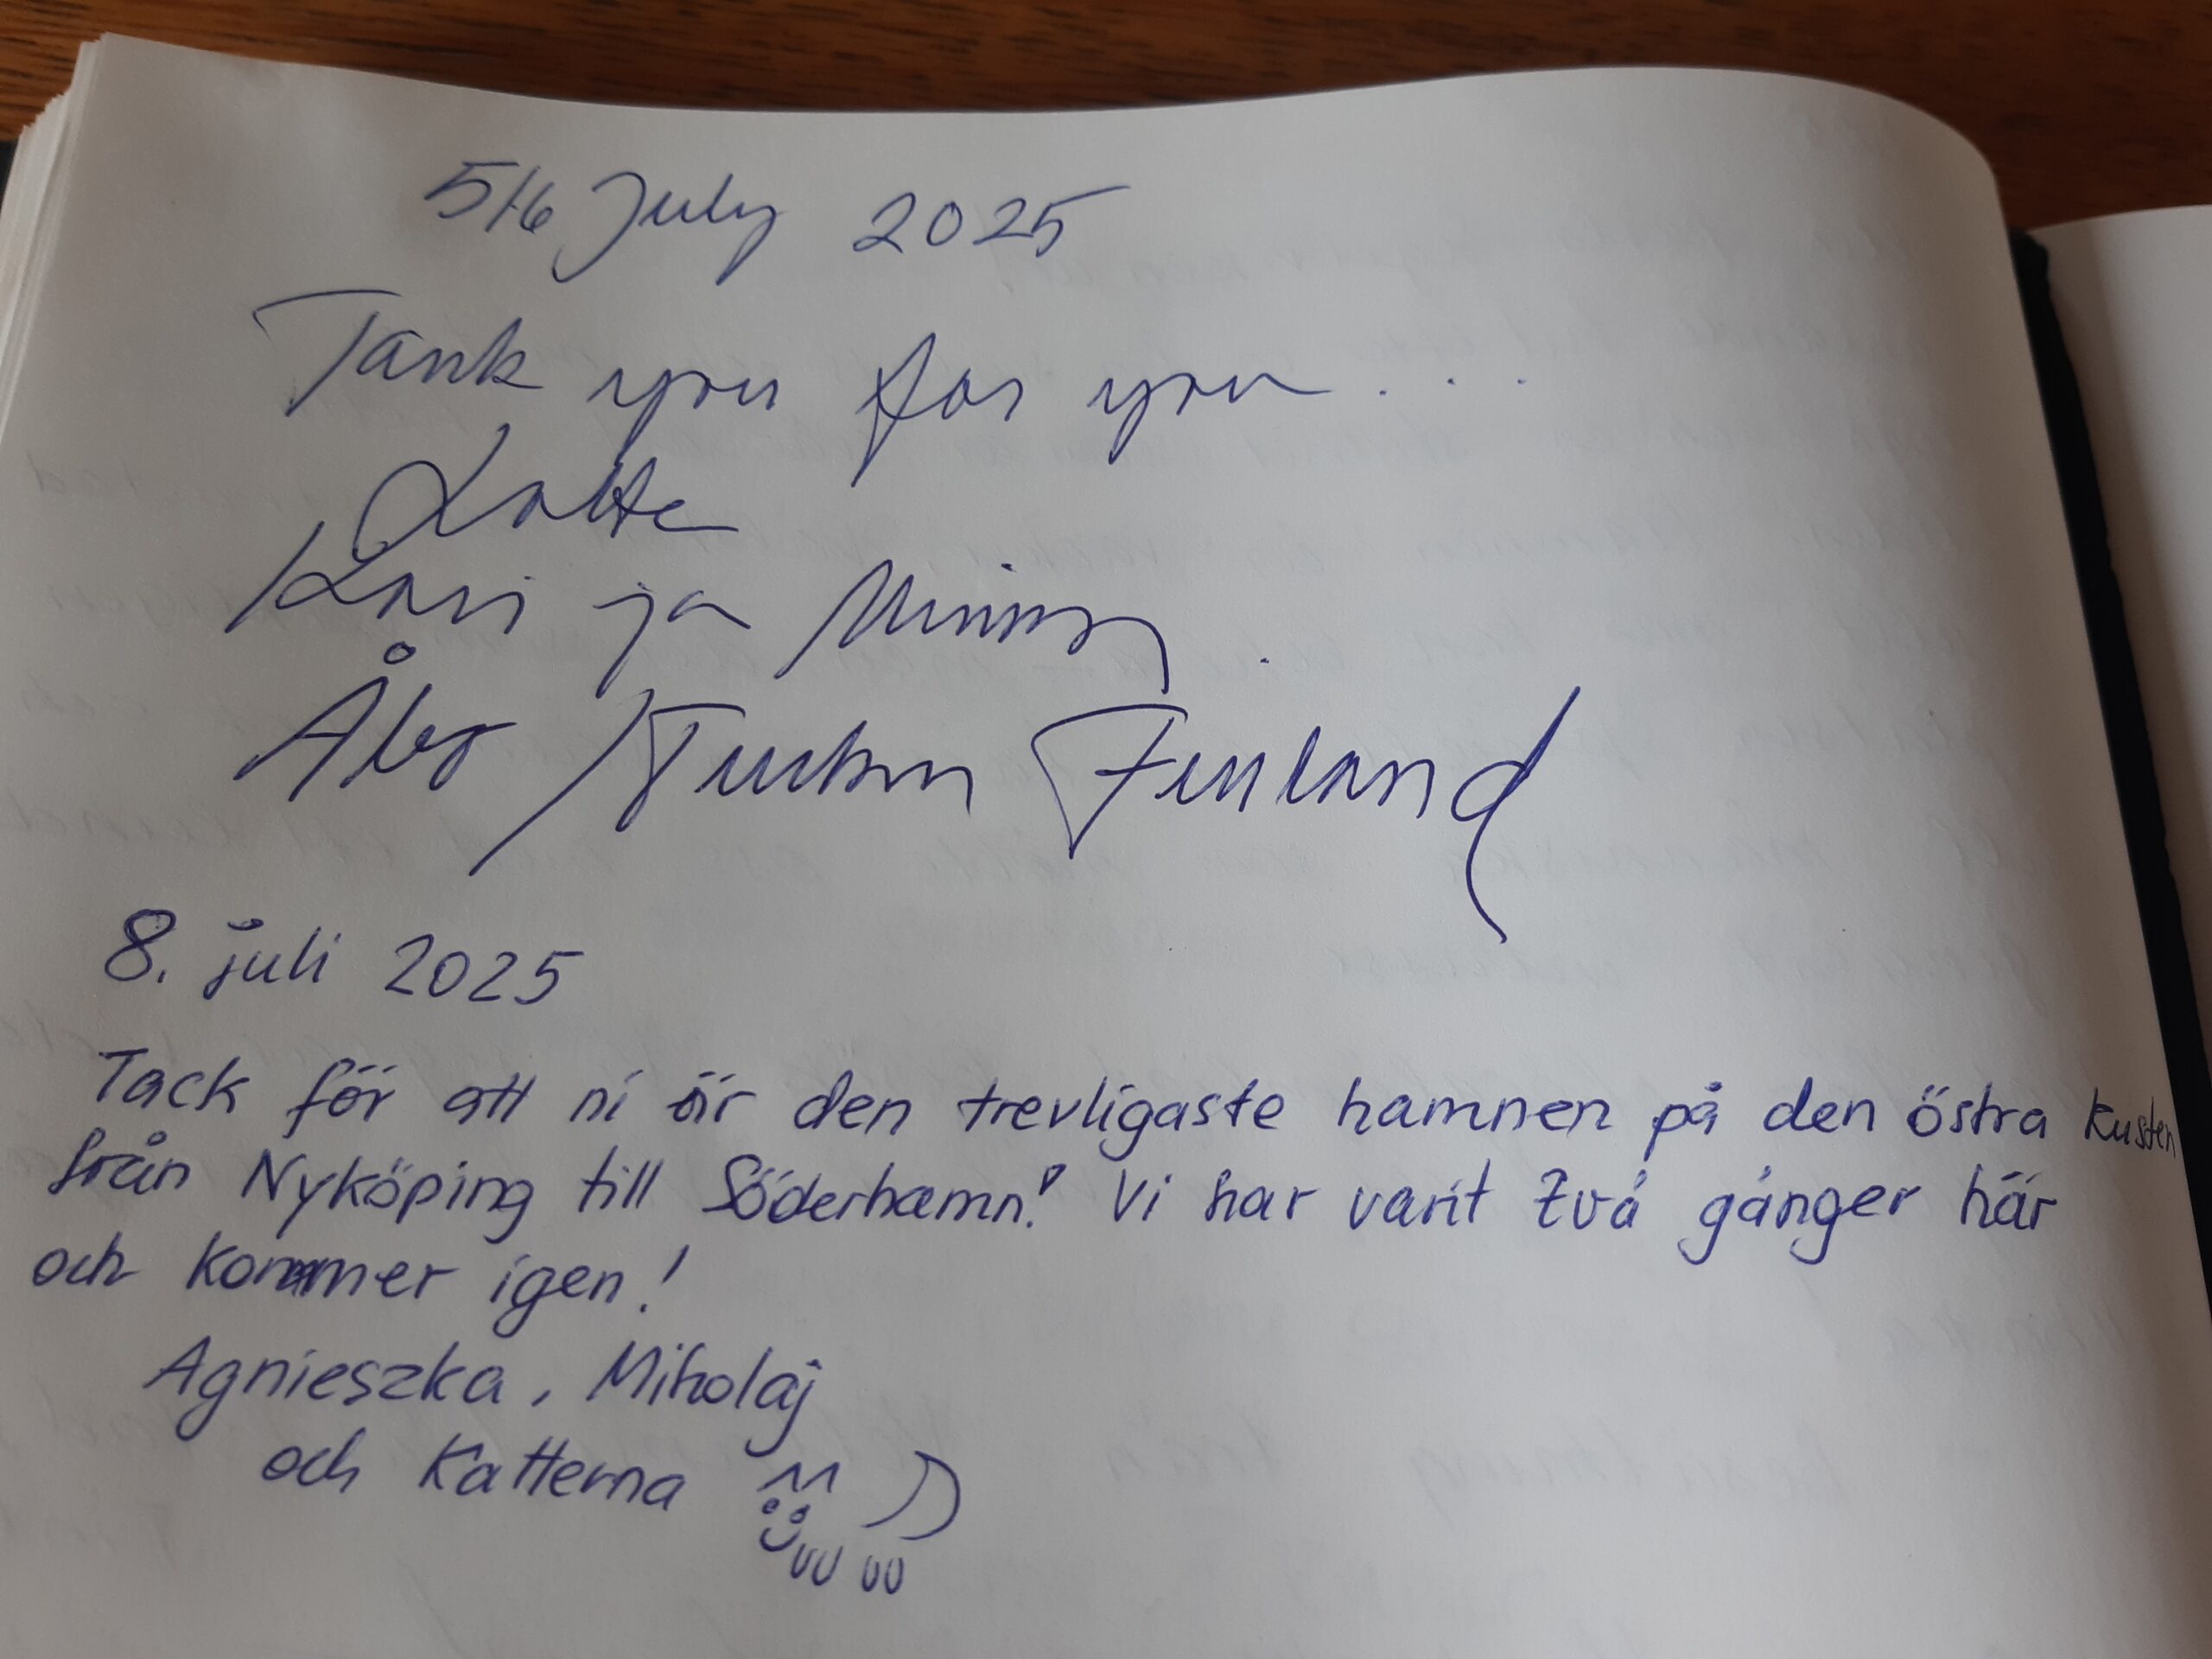 5/6 July 2025
Tank you for you ...
Lotte
Kari ja Minna.
Åbo / Turku Finland
8. juli 2025
Tack för att ni är den trevligaste hamnen på den östra kusten
från Nyköping till Söderhamn! Vi har varit två gånger här
och kommer igen!
Agnieszka, Mikolaj
och Katterna